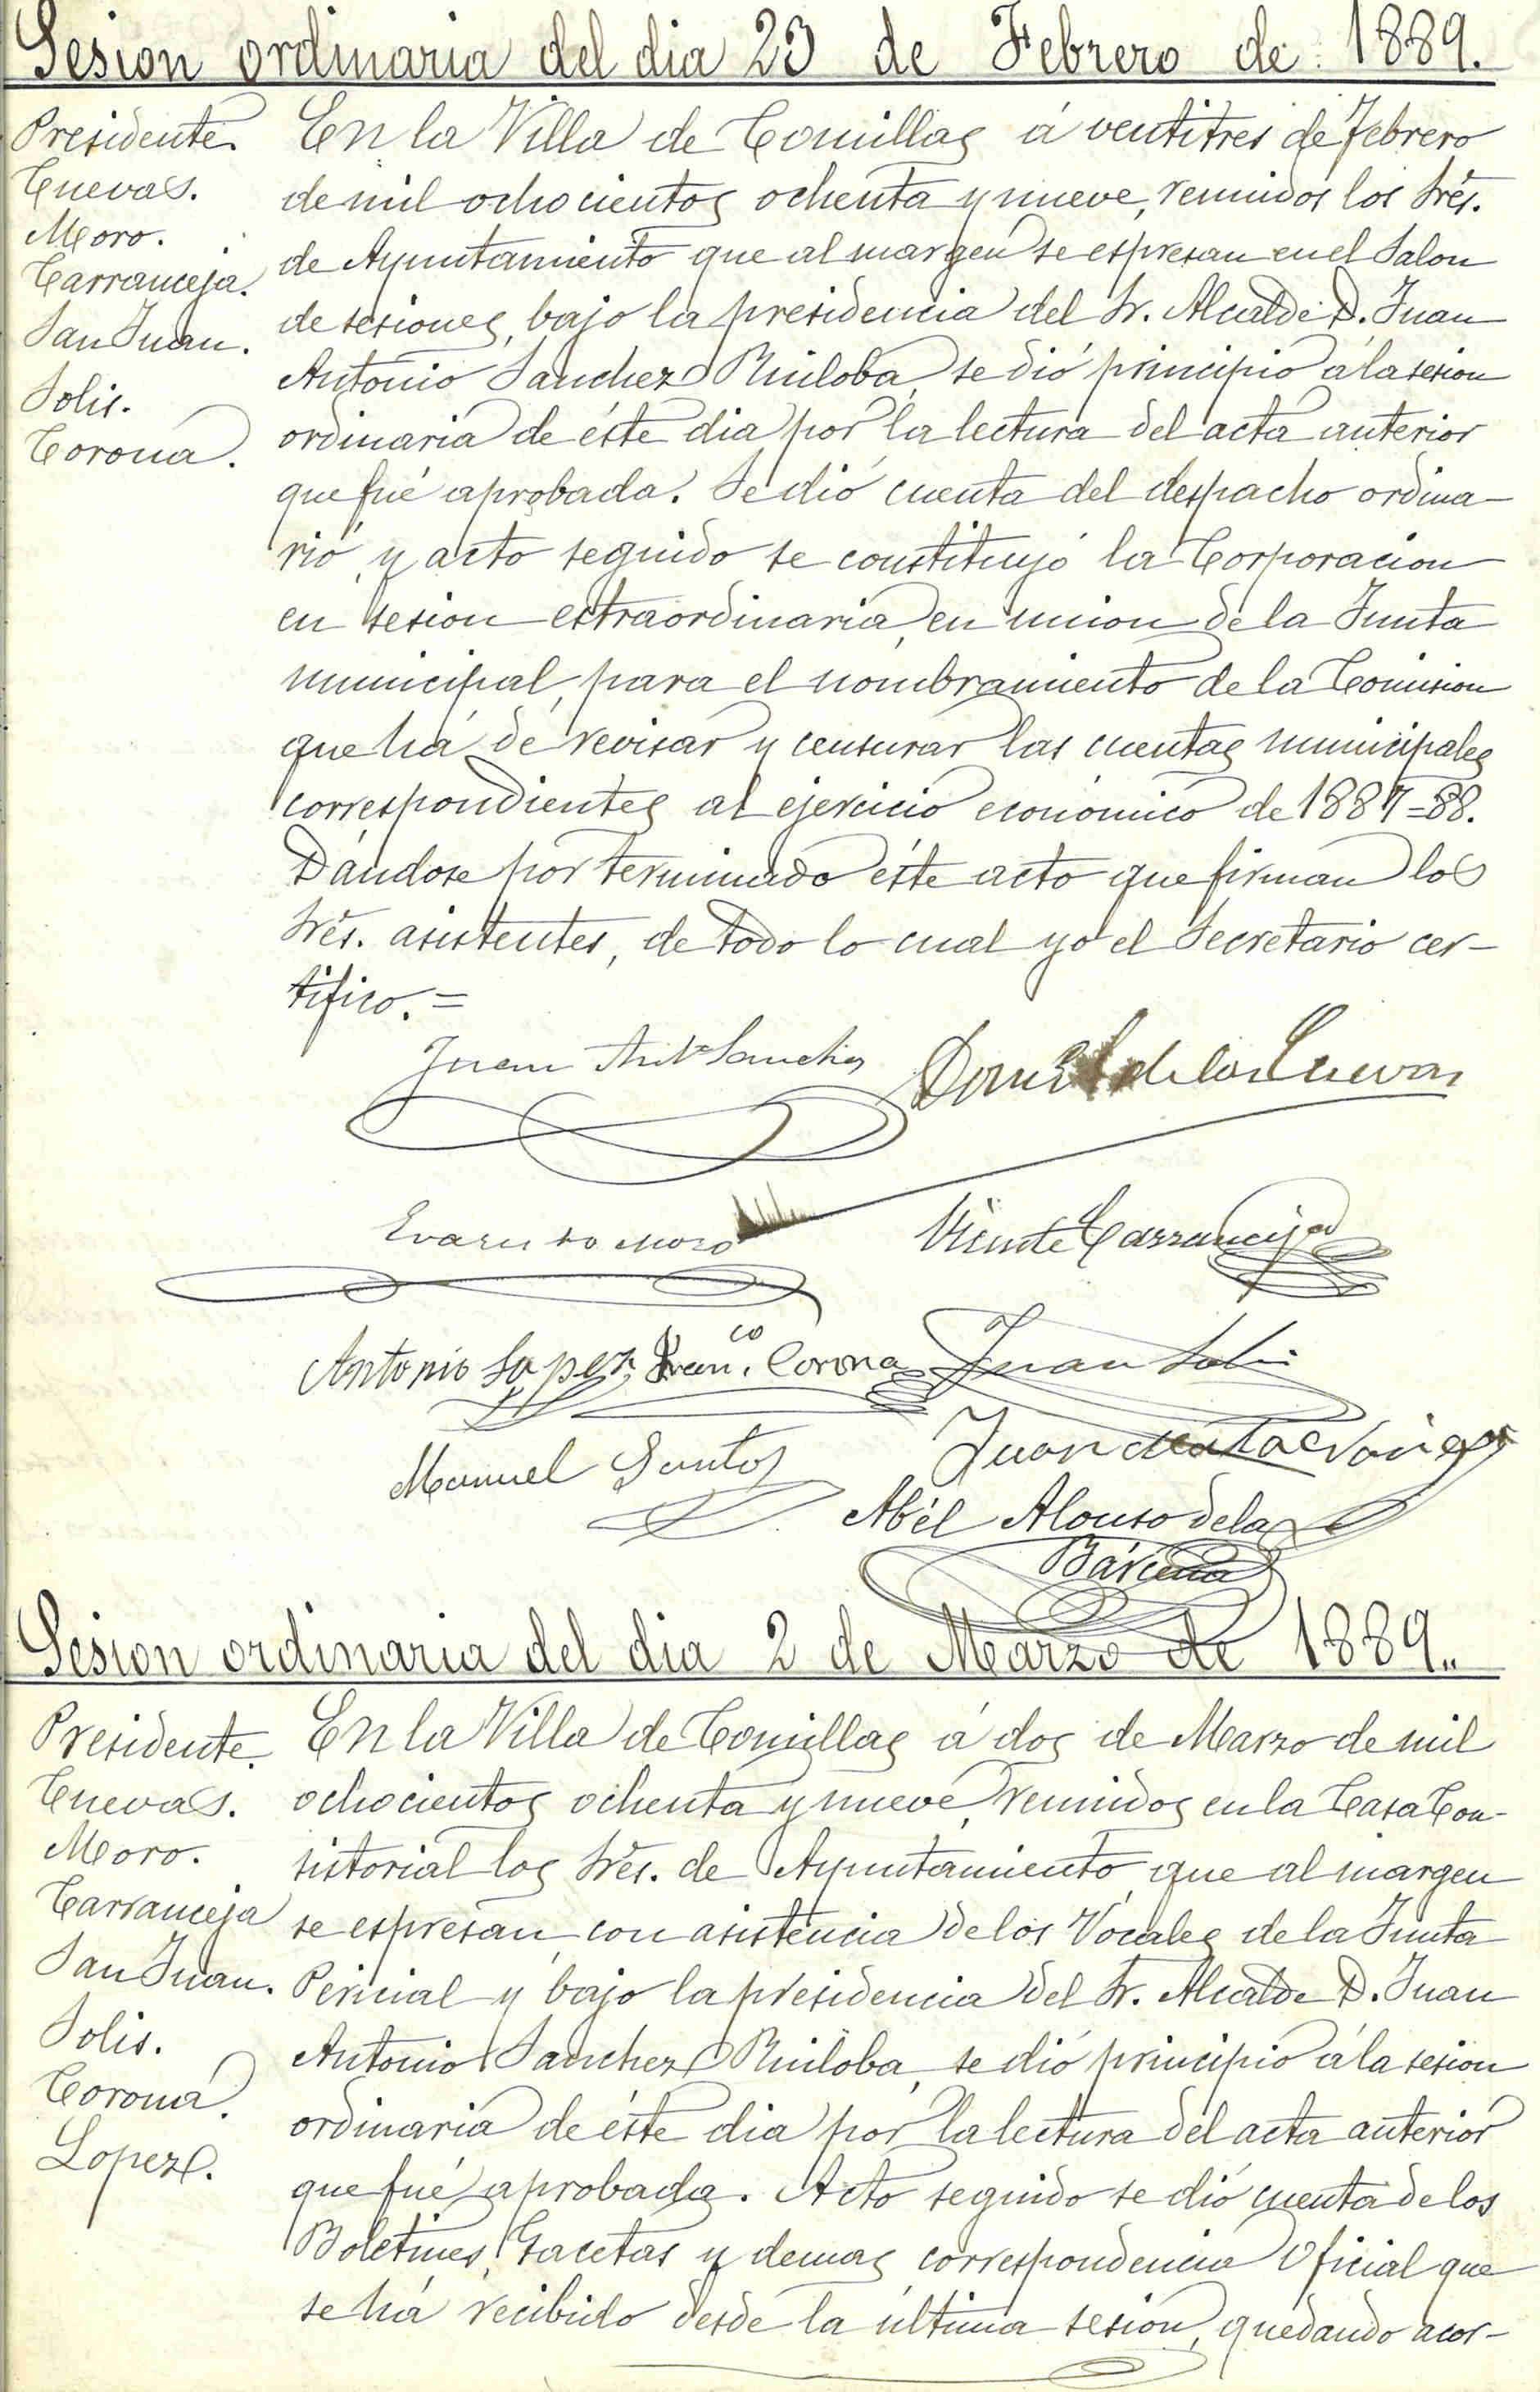 Sesion ordinaria del dia 23 de Febrero de 1889.
Presidente.
Cuevas.
Moro.
Carranceja.
San Juan.
Solis.
Corona.
En la Villa de Comillas á ventitres de Febrero
de mil ochocientos ochenta y nueve, reunidos los Srēs.
de Ayuntamiento que al margen se espresan en el Salon
de sesiones, bajo la presidencia del Sr. Alcalde D. Juan
Antonio Sanchez Ruiloba, se dió principio á la sesion
ordinaria de éste dia por la lectura del acta anterior
que fué aprobada. Se dió cuenta del despacho ordina-
rio, y acto seguido se constituyó la Corporacion
en sesion extraordinaria, en union de la Junta
municipal, para el nombramiento de la Comision
que há de revisar y censurar las cuentas municipales
correspondientes al ejercicio económico de 1887=88.
Dándose por terminado éste acto que firman los
Srēs. asistentes, de todo lo cual yo el Secretario cer-
tifico. =
Juan Antº Sanchez
Daniel de las Cuevas
Evaristo Moro
Vicente Carranceja
Antonio Lopez Franco. Corona Juan Solis
Manuel Santos
Juan
Abél Alonso de la
Bárcena
Sesion ordinaria del dia 2 de Marzo de 1889..
Presidente.
Cuevas.
Moro.
Carranceja
San Juan.
Solis.
Corona.
Lopez.
En la Villa de Comillas á dos de Marzo de mil
ochocientos ochenta y nueve, reunidos en la Casa Con-
sistorial los Srēs. de Ayuntamiento que al margen
se espresan, con asistencia de los Vocales de la Junta
Pericial y bajo la presidencia del Sr. Alcalde D. Juan
Antonio Sanchez Ruiloba, se dió principio á la sesion
ordinaria de éste dia por la lectura del acta anterior
que fué aprobada. Acto seguido se dió cuenta de los
Boletines, Gacetas y demas correspondencia Oficial que
se há recibido desde la última sesion, quedando acor-